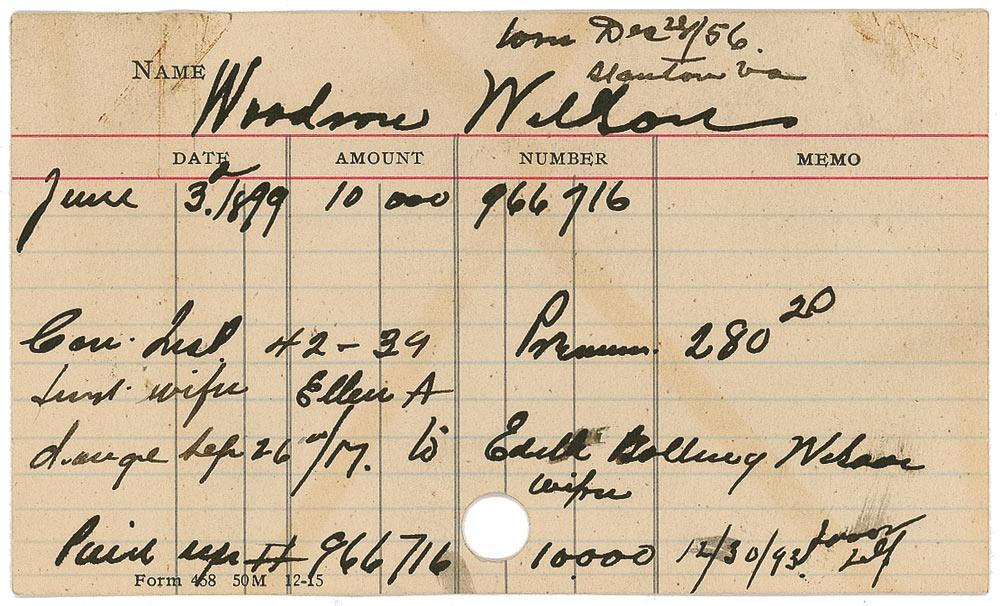 born Dec 28/56.
Staunton Va
NAME Woodrow Wilson
DATE AMOUNT NUMBER MEMO
June 3./1899 10 000 966 716
Con. Inst 42-39 Premium. 280 20
wife Ellen A
change Sep 26/17. to Edith Bolling Wilson
wife
Paid up # 966716 10.000 12/30/93
Form 458 50M 12-15